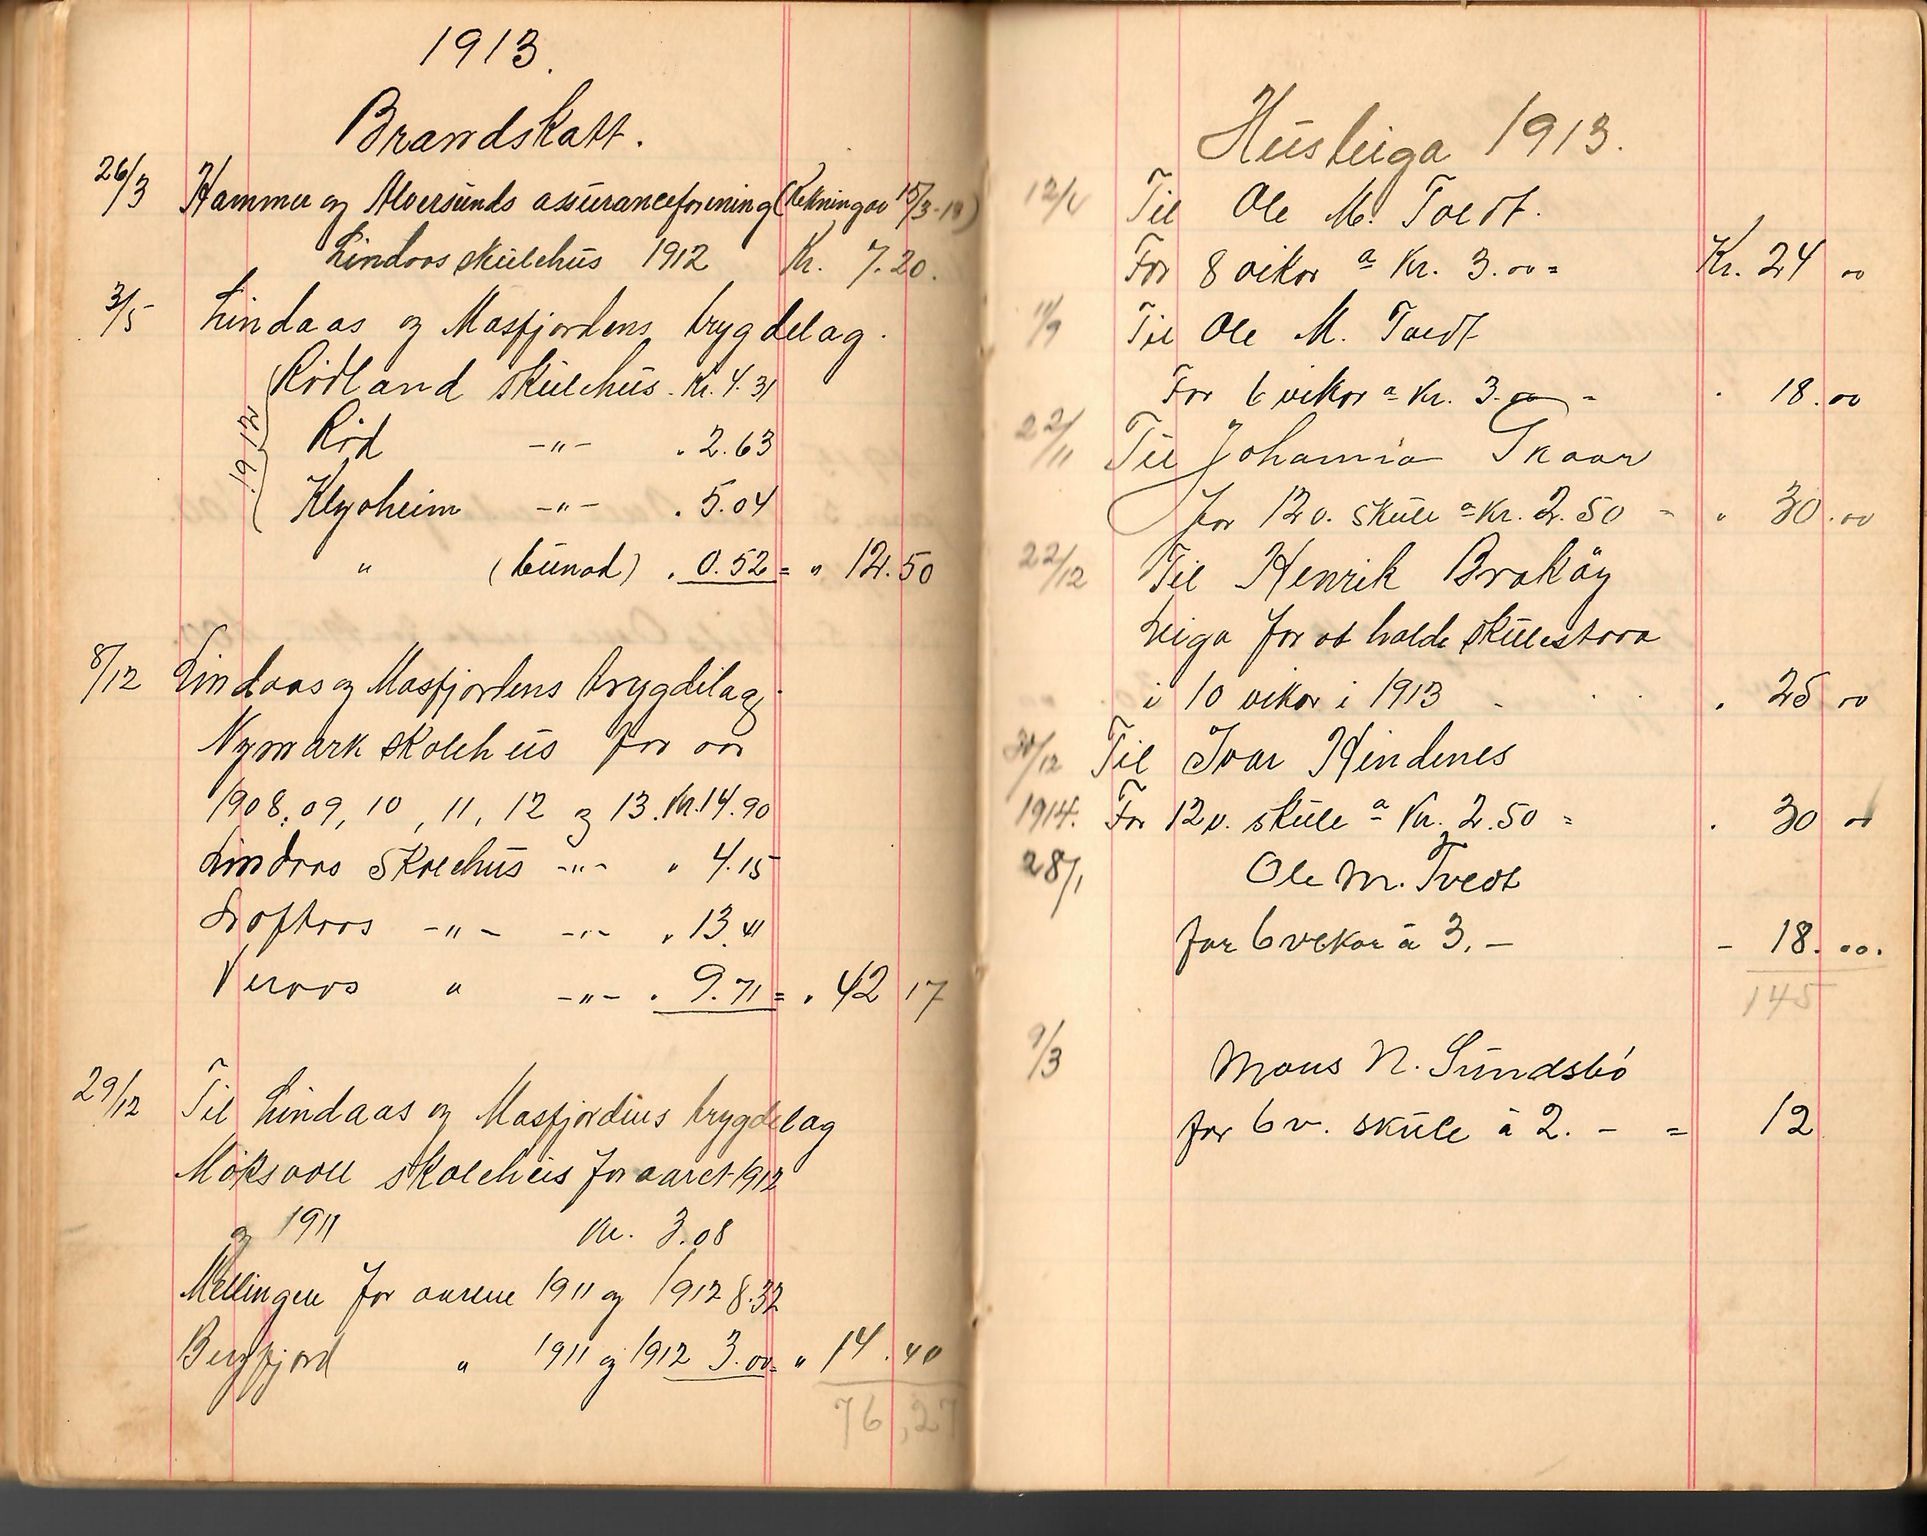 1913.
Brandskatt.
26/3 Hammer og Alversunds assuranceforening (Rekning av 15/3-13)
Lindaas skulehus 1912 Kr. 7.20.
3/5 Lindaas og Masfjordens brygdelag.
1912
Rödland skulehus. Kr. 4.31
Röd -"- " 2.63
Klyvheim -"- " 5.04
" (bunad) " 0.52 = " 12.50
8/12 Lindaas og Masfjordens brygdelag.
Nymark skolehus for aar
1908, 09, 10, 11, 12 og 13. Kr. 14.90
Lindaas Skolehus -"- " 4.15
Loftaas -"- -"- " 13.41
Veraas " -"- " 9.71 = " 42 17
29/12 Til Lindaas og Masfjordens brygdelag
skolehus for aaret 1912
og 1911 Kr. 3.08
Mellingen for aarene 1911 og 1912 8.32
Bergfjord " 1911 og 1912 3.00 = " 14.40
76,27
Husleiga 1913.
12/4 Til Ole M. Tvedt.
For 8 vikor a Kr. 3.00 = Kr. 24 00
11/9 Til Ole M. Tvedt
For 6 vikor a Kr. 3.00 = " 18.00
22/11 Til Johannia Skaar
for 12 v. skule a Kr. 2.50 = " 30.00
22/12 Til Henrik Braköy
Leiga for at halde skulestova
i 10 vikor i 1913 " 25 00
30/12 Til Ivar Hindenes
1914. For 12 v. skule a Kr. 2.50 = " 30 00
28/1 Ole M. Tvedt
for 6 vekor à 3.— - 18.00.
145
9/3 Mons N. Sundsbö
for 6 v. skule à 2.— = 12